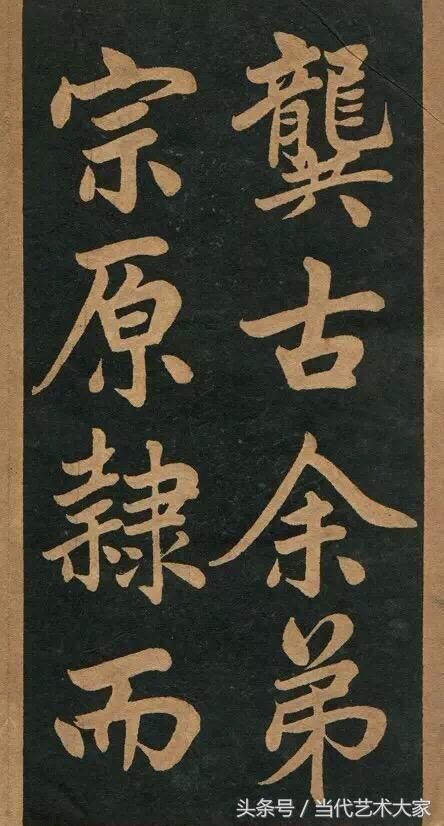 龔古余弟
宗原隸而
头条号/当代艺术大家